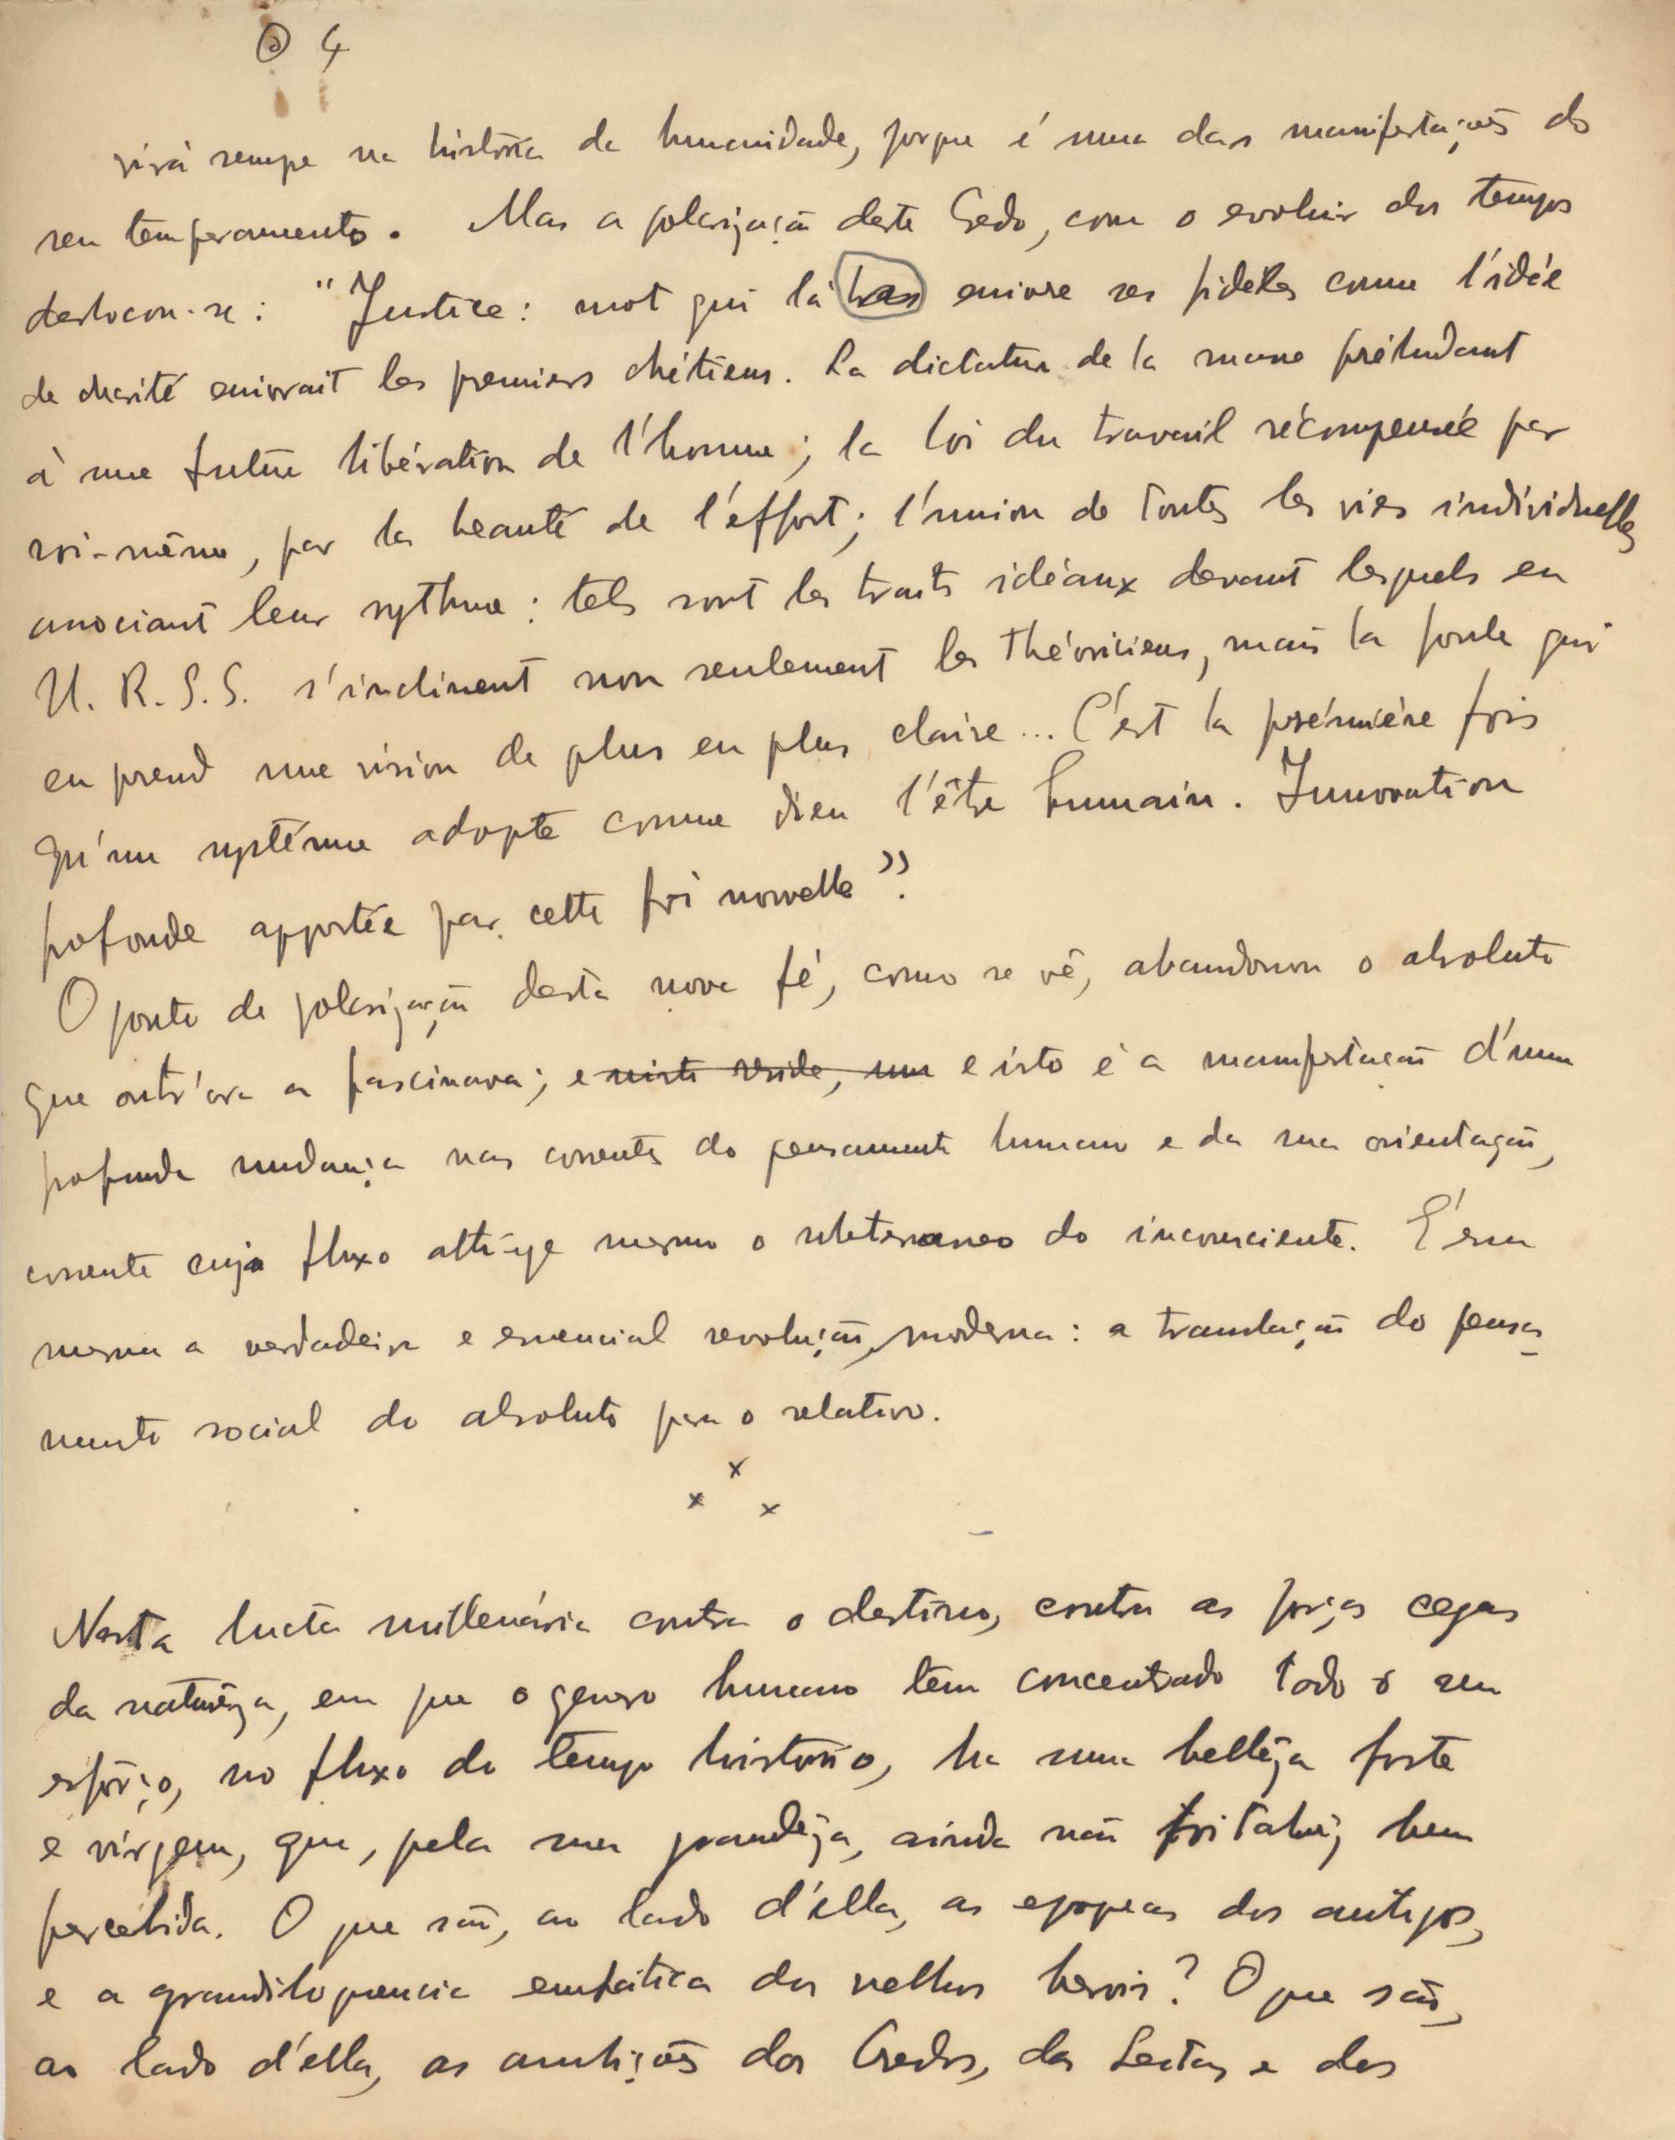 ④ 4
virá sempre na história da humanidade, porque é uma das manifestações do
seu temperamento. Mas a polarização deste Credo, com o evoluir dos tempos
deslocou-se: "Justice: mot qui là bas enivre ses fidèles comme l'idée
de charité enivrait les premiers chrétiens. La dictature de la masse préludant
à une future libération de l'homme; la loi du travail récompensée par
soi-même, par la beauté de l'effort; l'union de toutes les vies individuelles
associant leur rythme: tels sont les traits idéaux devant lesquels en
U. R. S. S. s'inclinent non seulement les théoriciens, mais la foule qui
en prend une vision de plus en plus claire... C'est la prémière fois
qu'un système adopte comme dieu l'être humain. Innovation
profonde apportée par cette foi nouvelle".
O ponto de polarização desta nova fé, como se vê, abandonou o absoluto
que outr'ora a fascinava; e nisto reside, um e isto é a manifestação d'uma
profunda mudança nas correntes do pensamento humano e da sua orientação,
corrente cujo fluxo attinge mesmo o subterraneo do inconsciente. É essa
mesma a verdadeira e essencial revolução moderna: a translação do pensa-
mento social do absoluto para o relativo.
x
x x
Nesta lucta millenária contra o destino, contra as forças cegas
da naturêza, em que o genero humano tem concentrado todo o seu
esfôrço, no fluxo do tempo histório, ha uma bellêza forte
e virgem, que, pela sua grandêza, ainda não foi talvêz bem
percebida. O que são, ao lado d'ella, as epopeas dos antigos,
e a grandiloquencia emfática dos velhos herois? O que são,
ao lado d'ella, as ambições dos Credos, das Seitas e dos